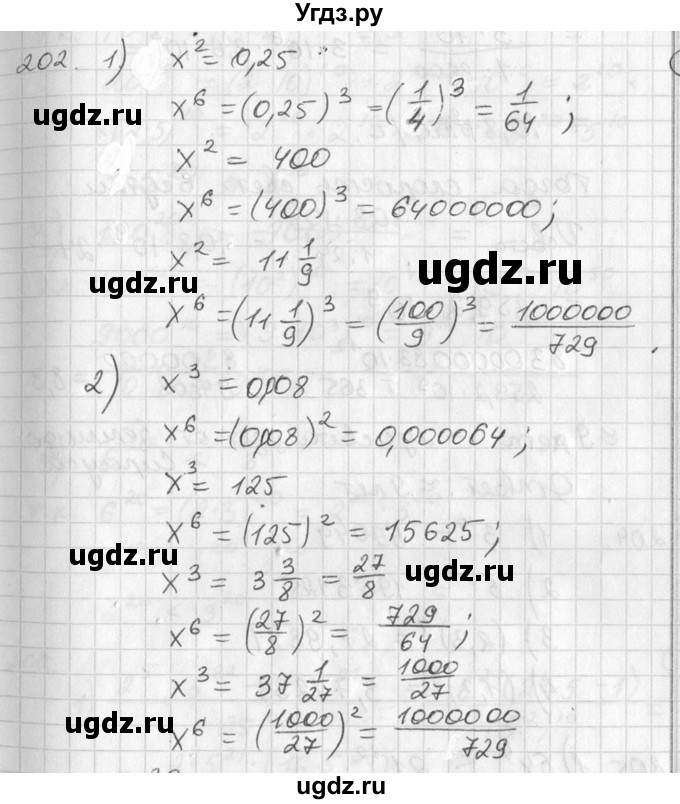 Угдз.ру
202. 1) x² = 0,25
x⁶ = (0,25)³ = (1/4)³ = 1/64 ;
ugdz.ru
x² = 400
x⁶ = (400)³ = 64000000;
x² = 11 1/9
ugdz.ru ugdz.ru
x⁶ = (11 1/9)³ = (100/9)³ = 1000000/729 .
2) x³ = 0,008
x⁶ = (0,008)² = 0,000064;
ugdz.ru ugdz.ru
x³ = 125
x⁶ = (125)² = 15625;
ugdz.ru
x³ = 3 3/8 = 27/8
ugdz.ru
x⁶ = (27/8)² = 729/64 ;
x³ = 37 1/27 = 1000/27
ugdz.ru ugdz.ru
x⁶ = (1000/27)² = 1000000/729
ugdz.ru